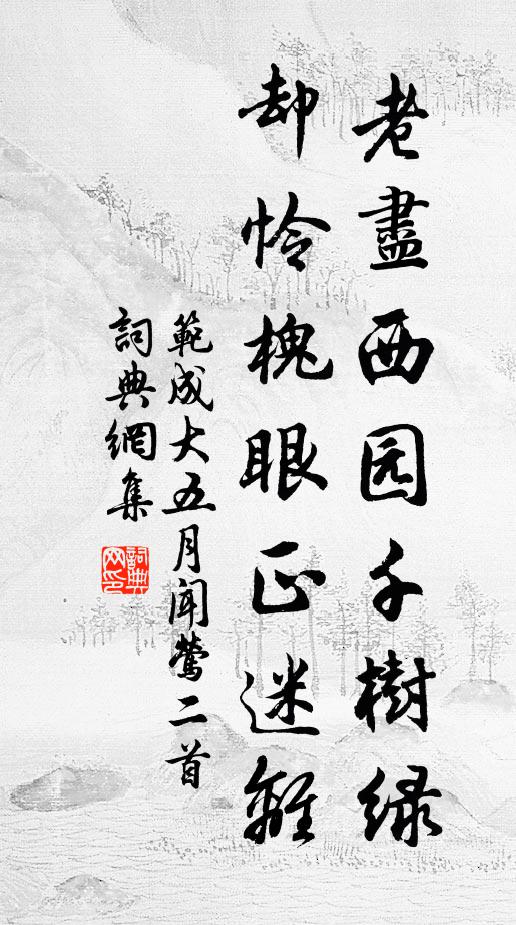 老盡西园千樹绿
却怜槐眼正迷離
範成大五月闻鶯二首
詞典網集
詞典网印